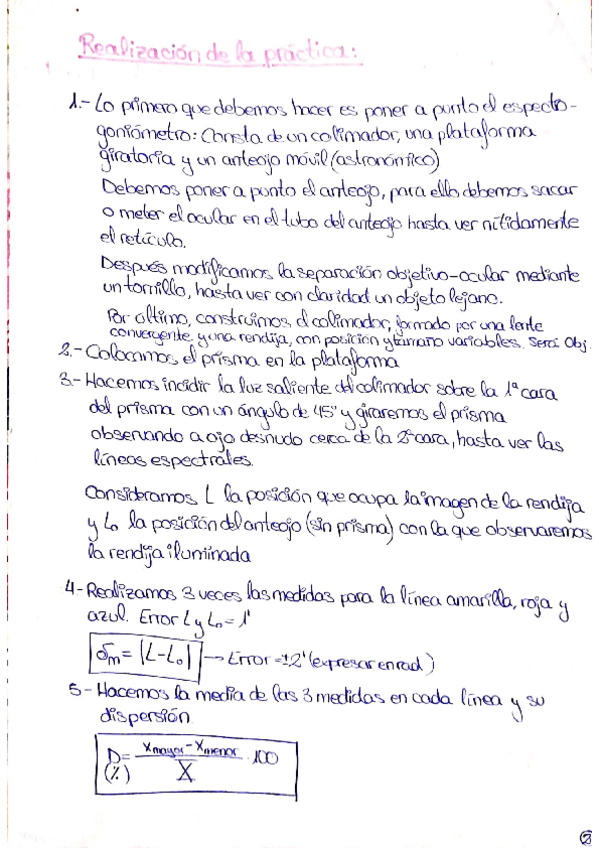 Realización de la práctica:
1.- Lo primero que debemos hacer es poner a punto el espectro-
goniómetro: Consta de un colimador, una plataforma
giratoria y un anteojo móvil (astronómico)
Debemos poner a punto el anteojo, para ello debemos sacar
o meter el ocular en el tubo del anteojo hasta ver nítidamente
el retículo.
Después modificamos la separación objetivo-ocular mediante
un tornillo, hasta ver con claridad un objeto lejano.
Por último, construimos el colimador, formado por una lente
convergente y una rendija, con posición y tamaño variables. Será Obj.
2.- Colocamos el prisma en la plataforma
3.- Hacemos incidir la luz saliente del colimador sobre la 1ª cara
del prisma con un ángulo de 45° y giraremos el prisma
observando a ojo desnudo cerca de la 2ª cara, hasta ver las
líneas espectrales.
Consideramos L la posición que ocupa la imagen de la rendija
y L₀ la posición del anteojo (sin prisma) con la que observaremos
la rendija iluminada
4- Realizamos 3 veces las medidas para la línea amarilla, roja y
azul. Error L y L₀ = 1'
δm = |L-L₀| → Error = ±2' (expresar en rad)
5- Hacemos la media de las 3 medidas en cada línea y su
dispersión
D = (x mayor - x menor) / X · 100
(%)
2